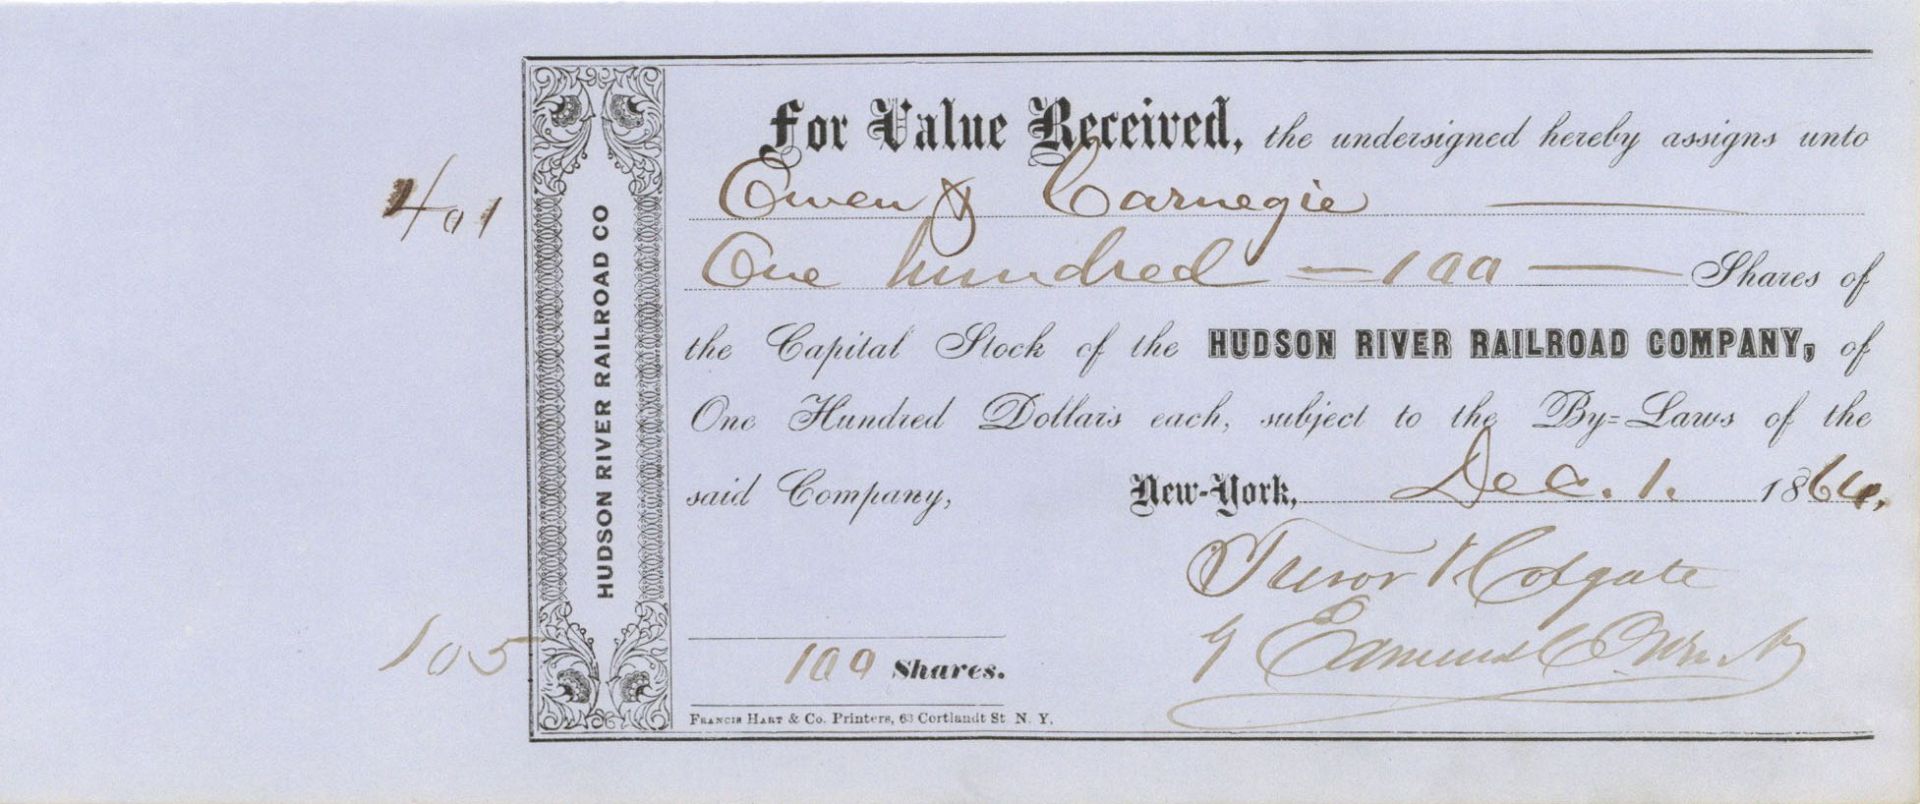 For Value Received, the undersigned hereby assigns unto
Owen & Carnegie
One hundred — 100 — Shares of
the Capital Stock of the HUDSON RIVER RAILROAD COMPANY, of
One Hundred Dollars each, subject to the By=Laws of the
said Company, New-York, Dec. 1. 1864,
Trevor & Colgate
100 Shares.
FRANCIS HART & Co. Printers, 63 Cortlandt St N. Y.
HUDSON RIVER RAILROAD CO
401
105